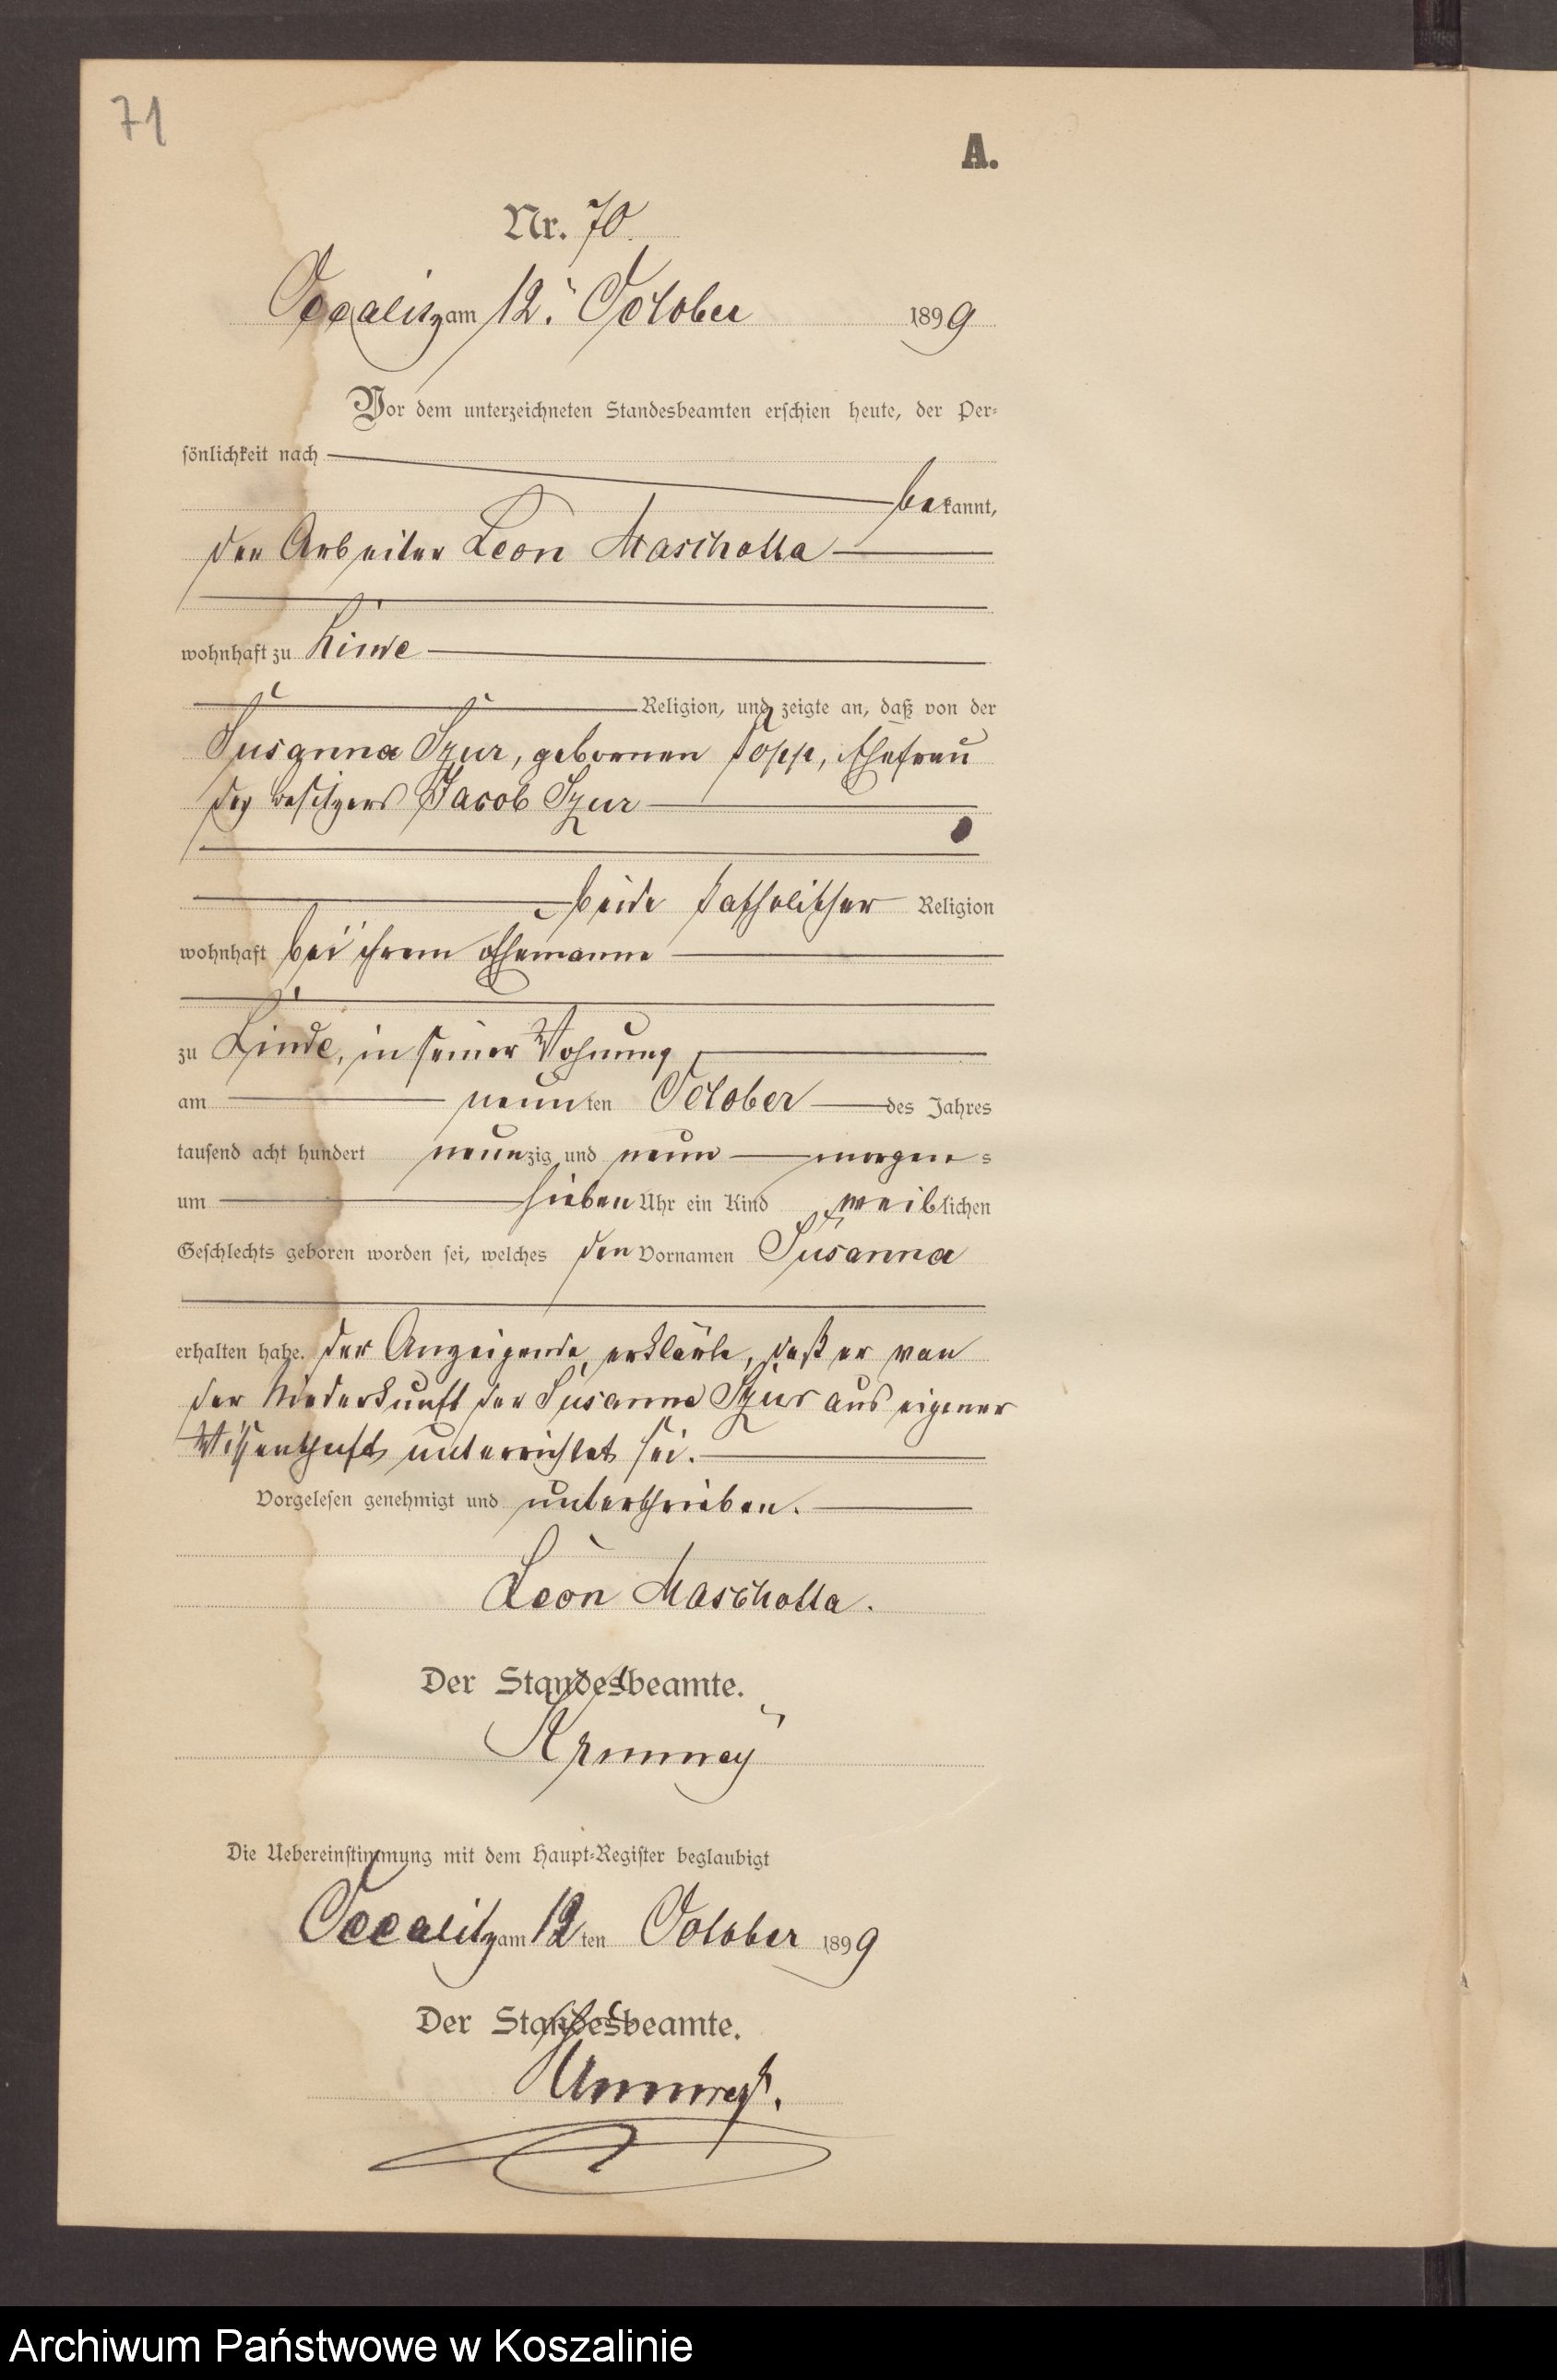 71
A.
Nr. 70.
Occalitz am 12. October 1899
Vor dem unterzeichneten Standesbeamten erschien heute, der Per-
sönlichkeit nach
bekannt,
der Arbeiter Leon Mascholla
wohnhaft zu Linde
Religion, und zeigte an, daß von der
Susanna Szur, geborenen Popp, Ehefrau
des Besitzers Jacob Szur
beide katholischer Religion
wohnhaft bei ihrem Ehemanne
zu Linde, in seiner Wohnung,
am neunten October des Jahres
tausend acht hundert neunzig und neun morgen-
um sieben Uhr ein Kind weiblichen
Geschlechts geboren worden sei, welches den Vornamen Susanna
erhalten habe. Der Anzeigende erklärte, daß er von
der Niederkunft der Susanna Szur aus eigener
Wissenschaft unterrichtet sei.
Vorgelesen genehmigt und unterschrieben.
Leon Mascholla.
Der Standesbeamte.
Die Uebereinstimmung mit dem Haupt-Register beglaubigt
Occalitz am 12ten October 1899
Der Standesbeamte.
Archiwum Państwowe w Koszalinie